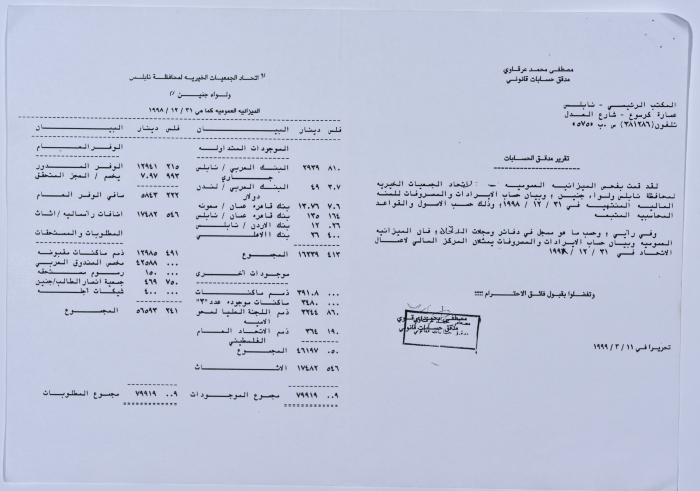 مصطفى محمد عرقاوي
مدقق حسابات قانوني
المكتب الرئيسي - نابلس
عمارة كرسوع - شارع العدل
تلفون (٣٨١٢٨٦) ص.ب ٥٧٥٥
تقرير مدقق الحسابات
لقد قمت بفحص الميزانيه العموميه لاتحاد الجمعيات الخيريه
لمحافظة نابلس ولواء جنين، وبيان حساب الايرادات والمصروفات للسنه
الماليه المنتهيه في ٣١ / ١٢ / ١٩٩٨، وذلك حسب الاصول والقواعد
المحاسبيه المتبعه
وفي رايي، وحسب ما هو مسجل في دفاتر وسجلات الاتحاد، فان الميزانيه
العموميه وبيان حساب الايرادات والمصروفات يمثلان المركز المالي لاعمال
الاتحاد في ٣١ / ١٢ / ١٩٩٨
وتفضلوا بقبول فائق الاحترام ،،،،
مصطفى محمد عرقاوي
مدقق حسابات قانوني
تحريرا في ١١ / ٣ / ١٩٩٩
اتحاد الجمعيات الخيريه لمحافظة نابلس
ولواء جنين
الميزانيه العموميه كما هي ٣١ / ١٢ / ١٩٩٨
فلس دينار البيان فلس دينار البيان
الموجودات المتداوله الوفر العام
٨١٠ ٢٩٣٩ البنك العربي / نابلس ٣١٥ ١٢٩٤١ الوفر المدور
جاري ٩٩٣ ٧٠٩٧ يخصم / العجز المتحقق
٣٠٧ ٤٩ البنك العربي / لندن
دولار ٣٢٢ ٥٨٤٣ صافي الوفر العام
٧٠٦ ١٣٠٧٦ بنك قاهره عمان /
١٦٤ ١٣٥ بنك قاهره عمان / نابلس ٥٤٦ ١٧٤٨٢ اضافات راسماليه / اثاث
٠٢٦ ١٢ بنك الاردن / نابلس
٤٠٠ ٢٦ بنك الاهلي المطلوبات والمستحقات
٤١٣ ١٦٢٣٩ المجموع ٤٩١ ١٢٩٨٥ ذمم ماكنات مقبوضه
٠٠٠ ٤٢٥٨٨ مخصص الصندوق العربي
موجودات اخرى ٠٠٠ ١٥٠ رسوم مستحقه
٧٥٠ ٤٦٩ جمعية انصار الطالب/جنين
٠٠٠ ٣٩١٠٨ ذمم ماكنات ٠٠٠ ٤٠٠ شيكات اجله
٠٠٠ ٣٤٨٠ ماكنات موجوده عدد "٣"
٨٦٠ ٣٢٤٤ ذمم اللجنة العليا لمحو ٢٤١ ٥٦٥٩٣ المجموع
الاميه
١٩٠ ٣٦٤ ذمم الاتحاد العام
الفلسطيني
٠٥٠ ٤٦١٩٧ المجموع
٥٤٦ ١٧٤٨٢ الاثاث
٠٠٩ ٧٩٩١٩ مجموع الموجودات ٠٠٩ ٧٩٩١٩ مجموع المطلوبات